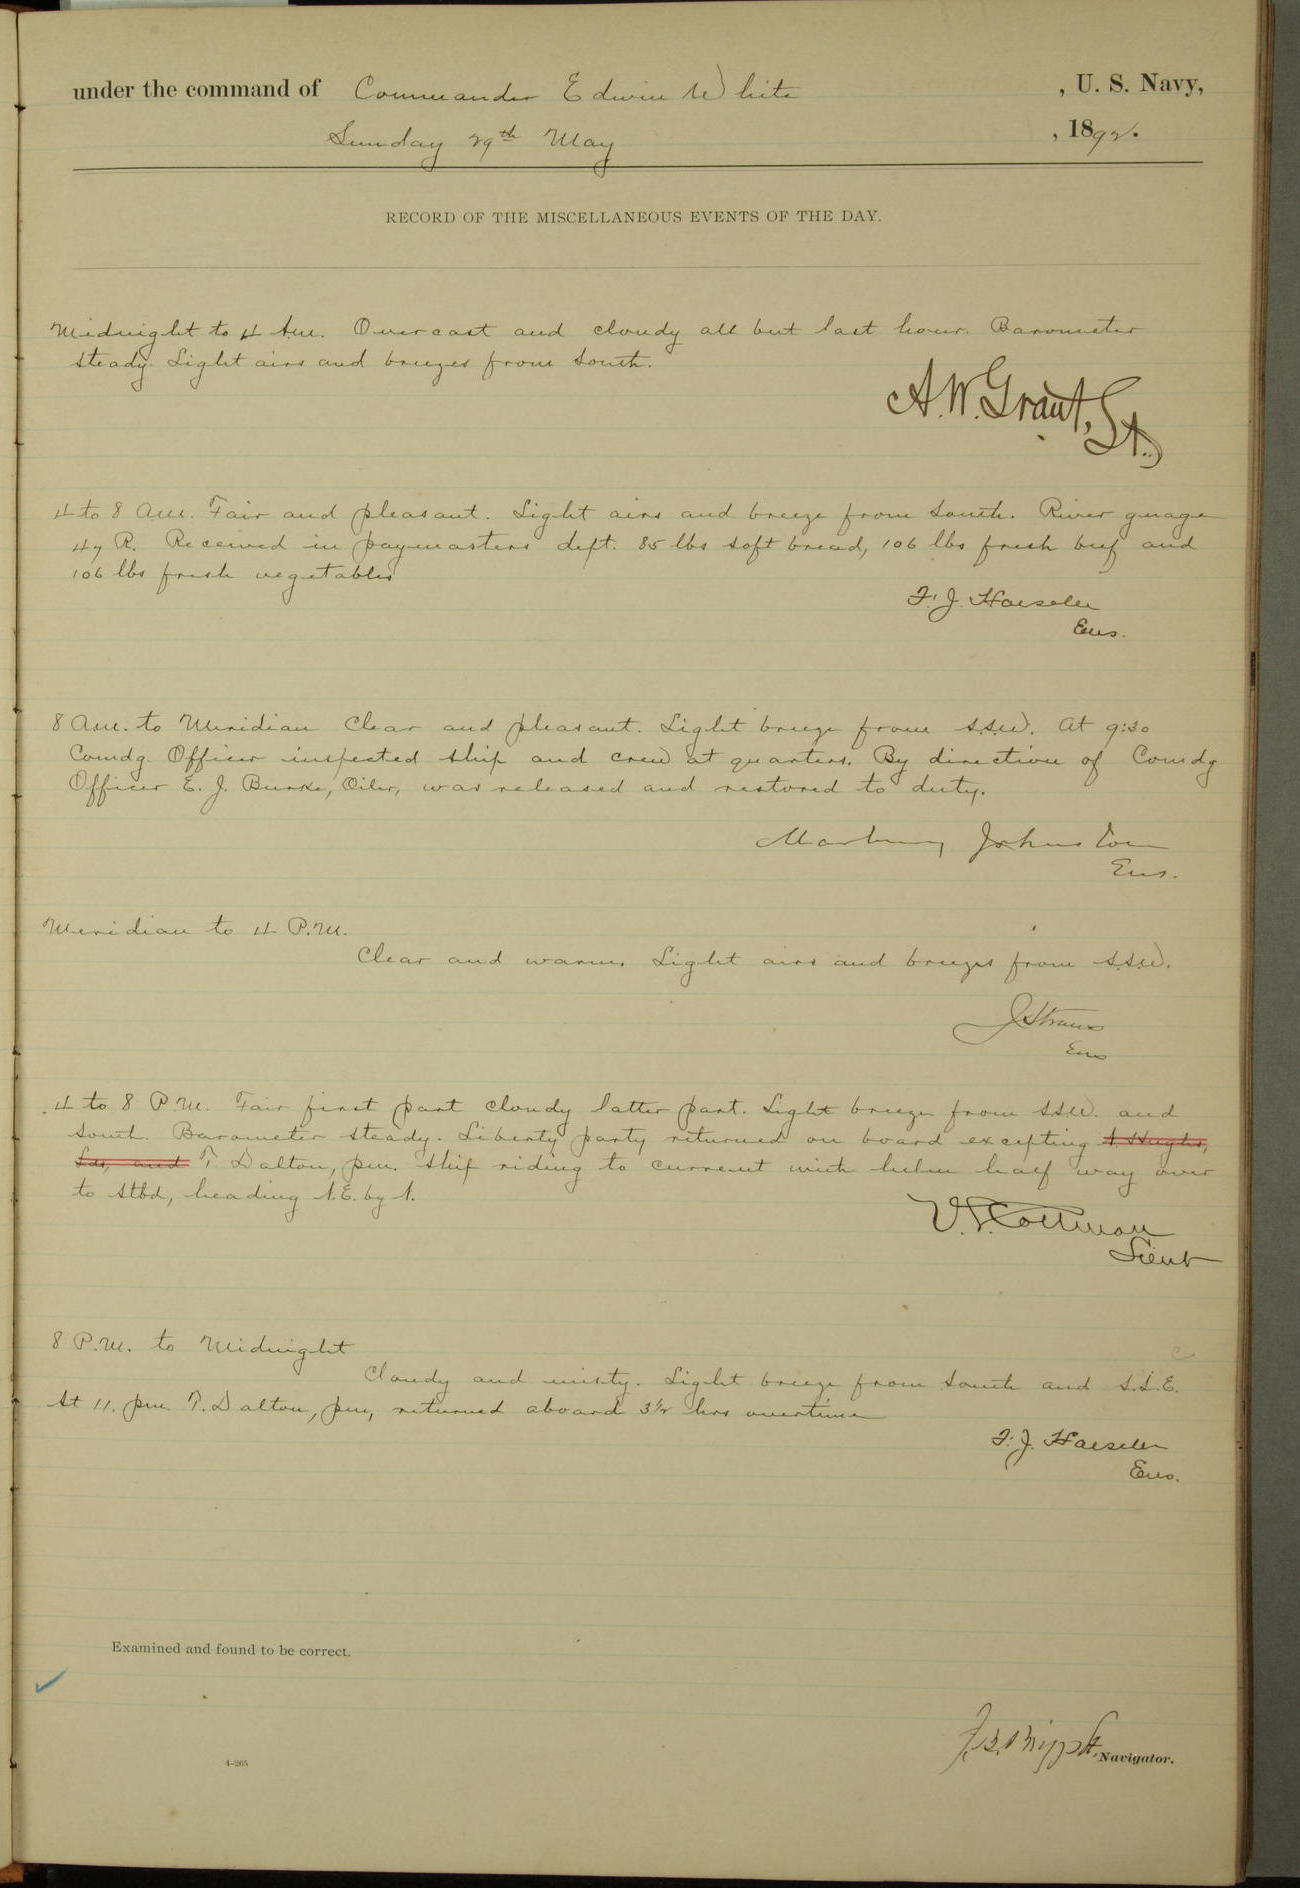 under the command of Commander Edwin White , U. S. Navy,
Sunday 29th May , 1892.
RECORD OF THE MISCELLANEOUS EVENTS OF THE DAY.
Midnight to 4 Am. Overcast and cloudy all but last hour. Barometer
steady. Light airs and breezes from South.
A.W. Grant, Lt.
4 to 8 Am. Fair and pleasant. Light airs and breeze from South. River guage
47 R. Received in paymasters dept. 85 lbs soft bread, 106 lbs fresh beef and
106 lbs fresh vegetables
F. J. Haeseler
Ens.
8 Am. to Meridian Clear and pleasant. Light breeze from S.S.W. At 9:30
Comdg. Officer inspected ship and crew at quarters. By direction of Comdg
Officer E. J. Burke, Oiler, was released and restored to duty.
Marbury Johnston
Ens.
Meridian to 4 P.M.
Clear and warm. Light airs and breezes from S.S.W.
J Strauss
Ens
4 to 8 P.M. Fair first part cloudy latter part. Light breeze from S.S.W. and
South. Barometer steady. Liberty party returned on board excepting Hughs,
Lds, and T. Dalton, pm. Ship riding to current with helm half way over
to stbd, heading N.E. by N.
V. L. Cottman
Lieut
8 P.M. to Midnight
Cloudy and misty. Light breeze from South and S.S.E.
At 11. pm T. Dalton, pm, returned aboard 3½ hrs overtime
F. J. Haeseler
Ens.
Examined and found to be correct.
4-265
Navigator.